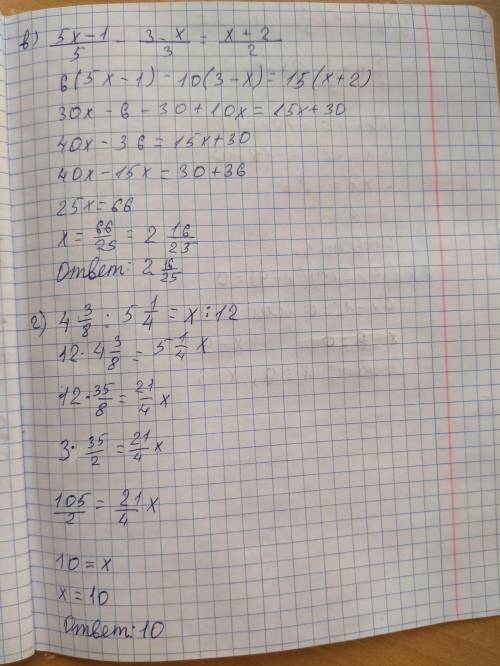 в) (5x-1)/5 - (3-x)/3 = (x+2)/2
6(5x-1)-10(3-x)=15(x+2)
30x-6-30+10x=15x+30
40x-36=15x+30
40x-15x=30+36
25x=66
x=66/25=2 16/23
Ответ: 2 16/25
г) 4 3/8 : 5 1/4 = x:12
12·4 3/8 = 5 1/4 x
12·35/8 = 21/4 x
3·35/2 = 21/4 x
105/2 = 21/4 x
10=x
x=10
Ответ: 10